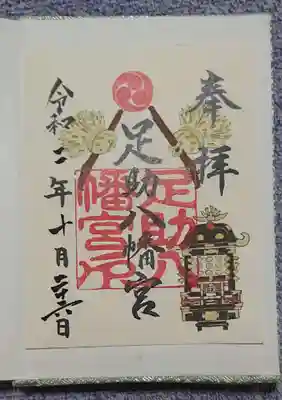 奉拝
足助八幡宮
足助八
幡宮印
令和二年十月 日